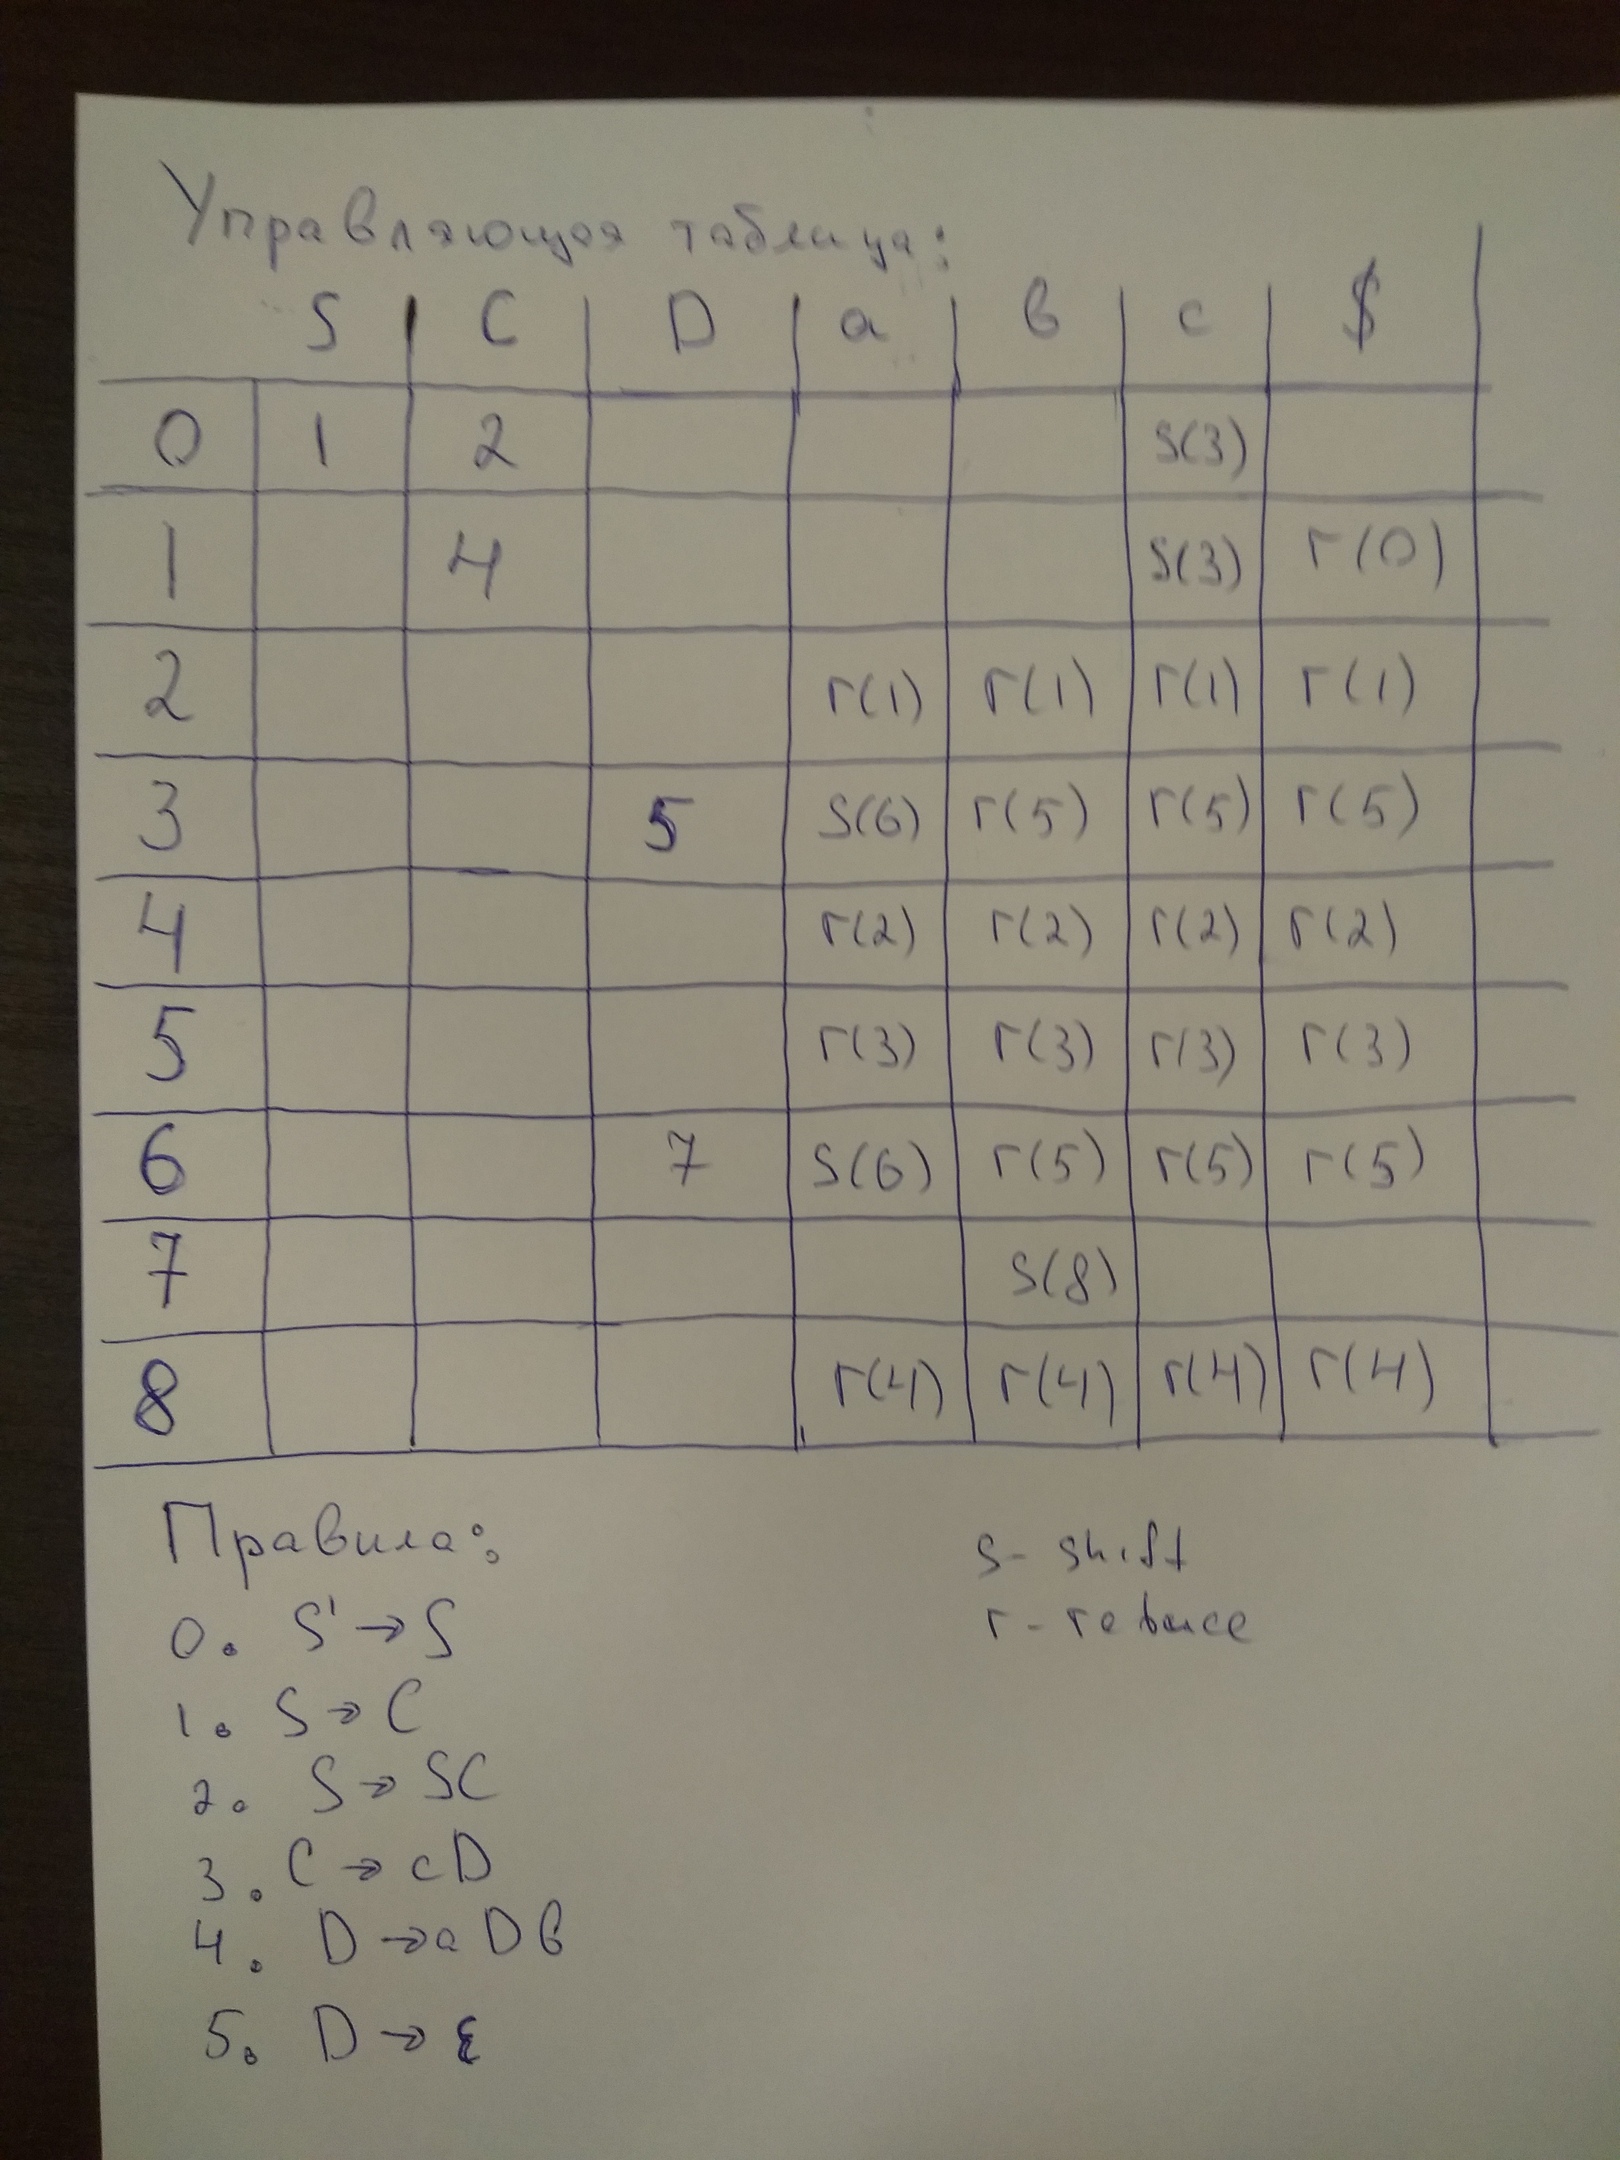 Управляющая таблица:
S C D a в c $
0 1 2 S(3)
1 4 S(3) r(0)
2 r(1) r(1) r(1) r(1)
3 5 S(6) r(5) r(5) r(5)
4 r(2) r(2) r(2) r(2)
5 r(3) r(3) r(3) r(3)
6 7 S(6) r(5) r(5) r(5)
7 S(8)
8 r(4) r(4) r(4) r(4)
Правила:
S - shift
0. S' → S
r - reduce
1. S → C
2. S → SC
3. C → cD
4. D → a D в
5. D → ε